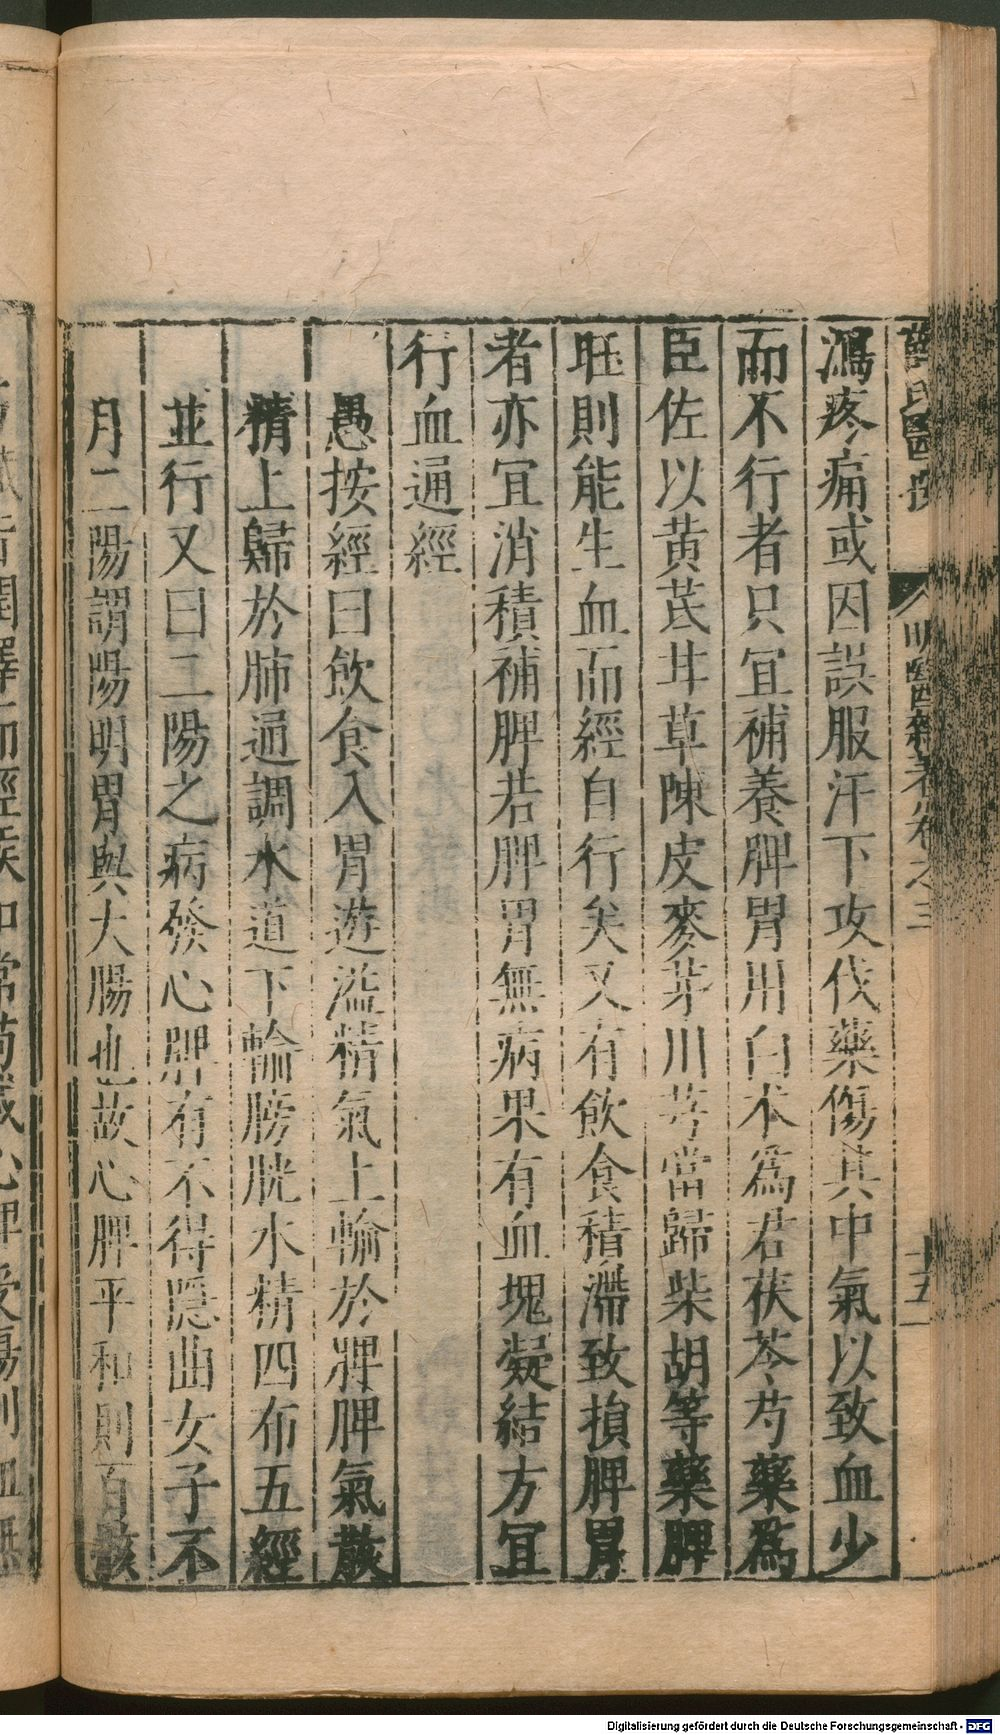 薛氏醫按
明醫雜著卷之三
十五
瀉疼痛或因誤服汗下攻伐藥傷其中氣以致血少
而不行者只宜補養脾胃用白朮爲君茯苓芍藥爲
臣佐以黄芪甘草陳皮麥芽川芎當歸柴胡等藥脾
旺則能生血而經自行矣又有飲食積滯致損脾胃
者亦宜消積補脾若脾胃無病果有血塊凝結方宜
行血通經
愚按經曰飲食入胃遊溢精氣上輸於脾脾氣散
精上歸於肺通調水道下輸膀胱水精四布五經
並行又曰二陽之病發心脾有不得隱曲女子不
月二陽謂陽明胃與大腸也故心脾平和則百骸
Digitalisierung gefördert durch die Deutsche Forschungsgemeinschaft - DFG